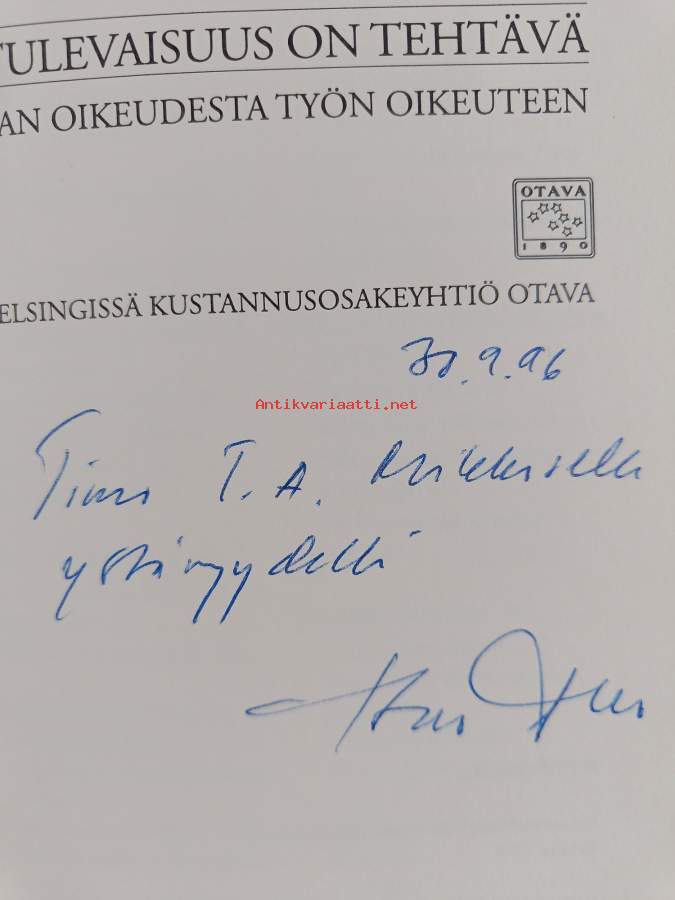 TULEVAISUUS ON TEHTÄVÄ
AN OIKEUDESTA TYÖN OIKEUTEEN
OTAVA
1890
ELSINGISSÄ KUSTANNUSOSAKEYHTIÖ OTAVA
30.9.96
Antikvariaatti.net
Timo T.A. Mikkoselle
ystävyydellä